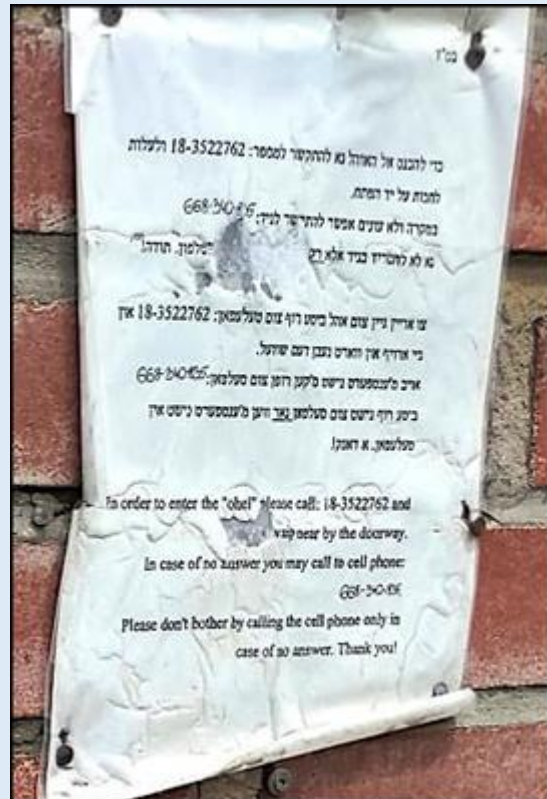 בס"ד
כדי להכנס אל האוהל נא להתקשר למספר: 18-3522762 ולעלות
לחכות על יד הפתח.
במקרה ולא עונים אפשר להתקשר לניד:
נא לא להטריד בניד אלא רק טלפון. תודה!
צו אריין גיין צום אהל ביטע רוף צום טעלעפאן: 18-3522762 און
גיי ארויף און ווארט נעבן דעם שוועל.
אויב מ'ענטפערט נישט מ'קען רופן צום סעלפאן: 668-340-835
ביטע רוף נישט צום סעלפאן נאר ווען מ'ענטפערט נישט אין
טעלעפאן. א דאנק!
In order to enter the "ohel" please call: 18-3522762 and
near by the doorway.
In case of no answer you may call to cell phone:
Please don't bother by calling the cell phone only in
case of no answer. Thank you!